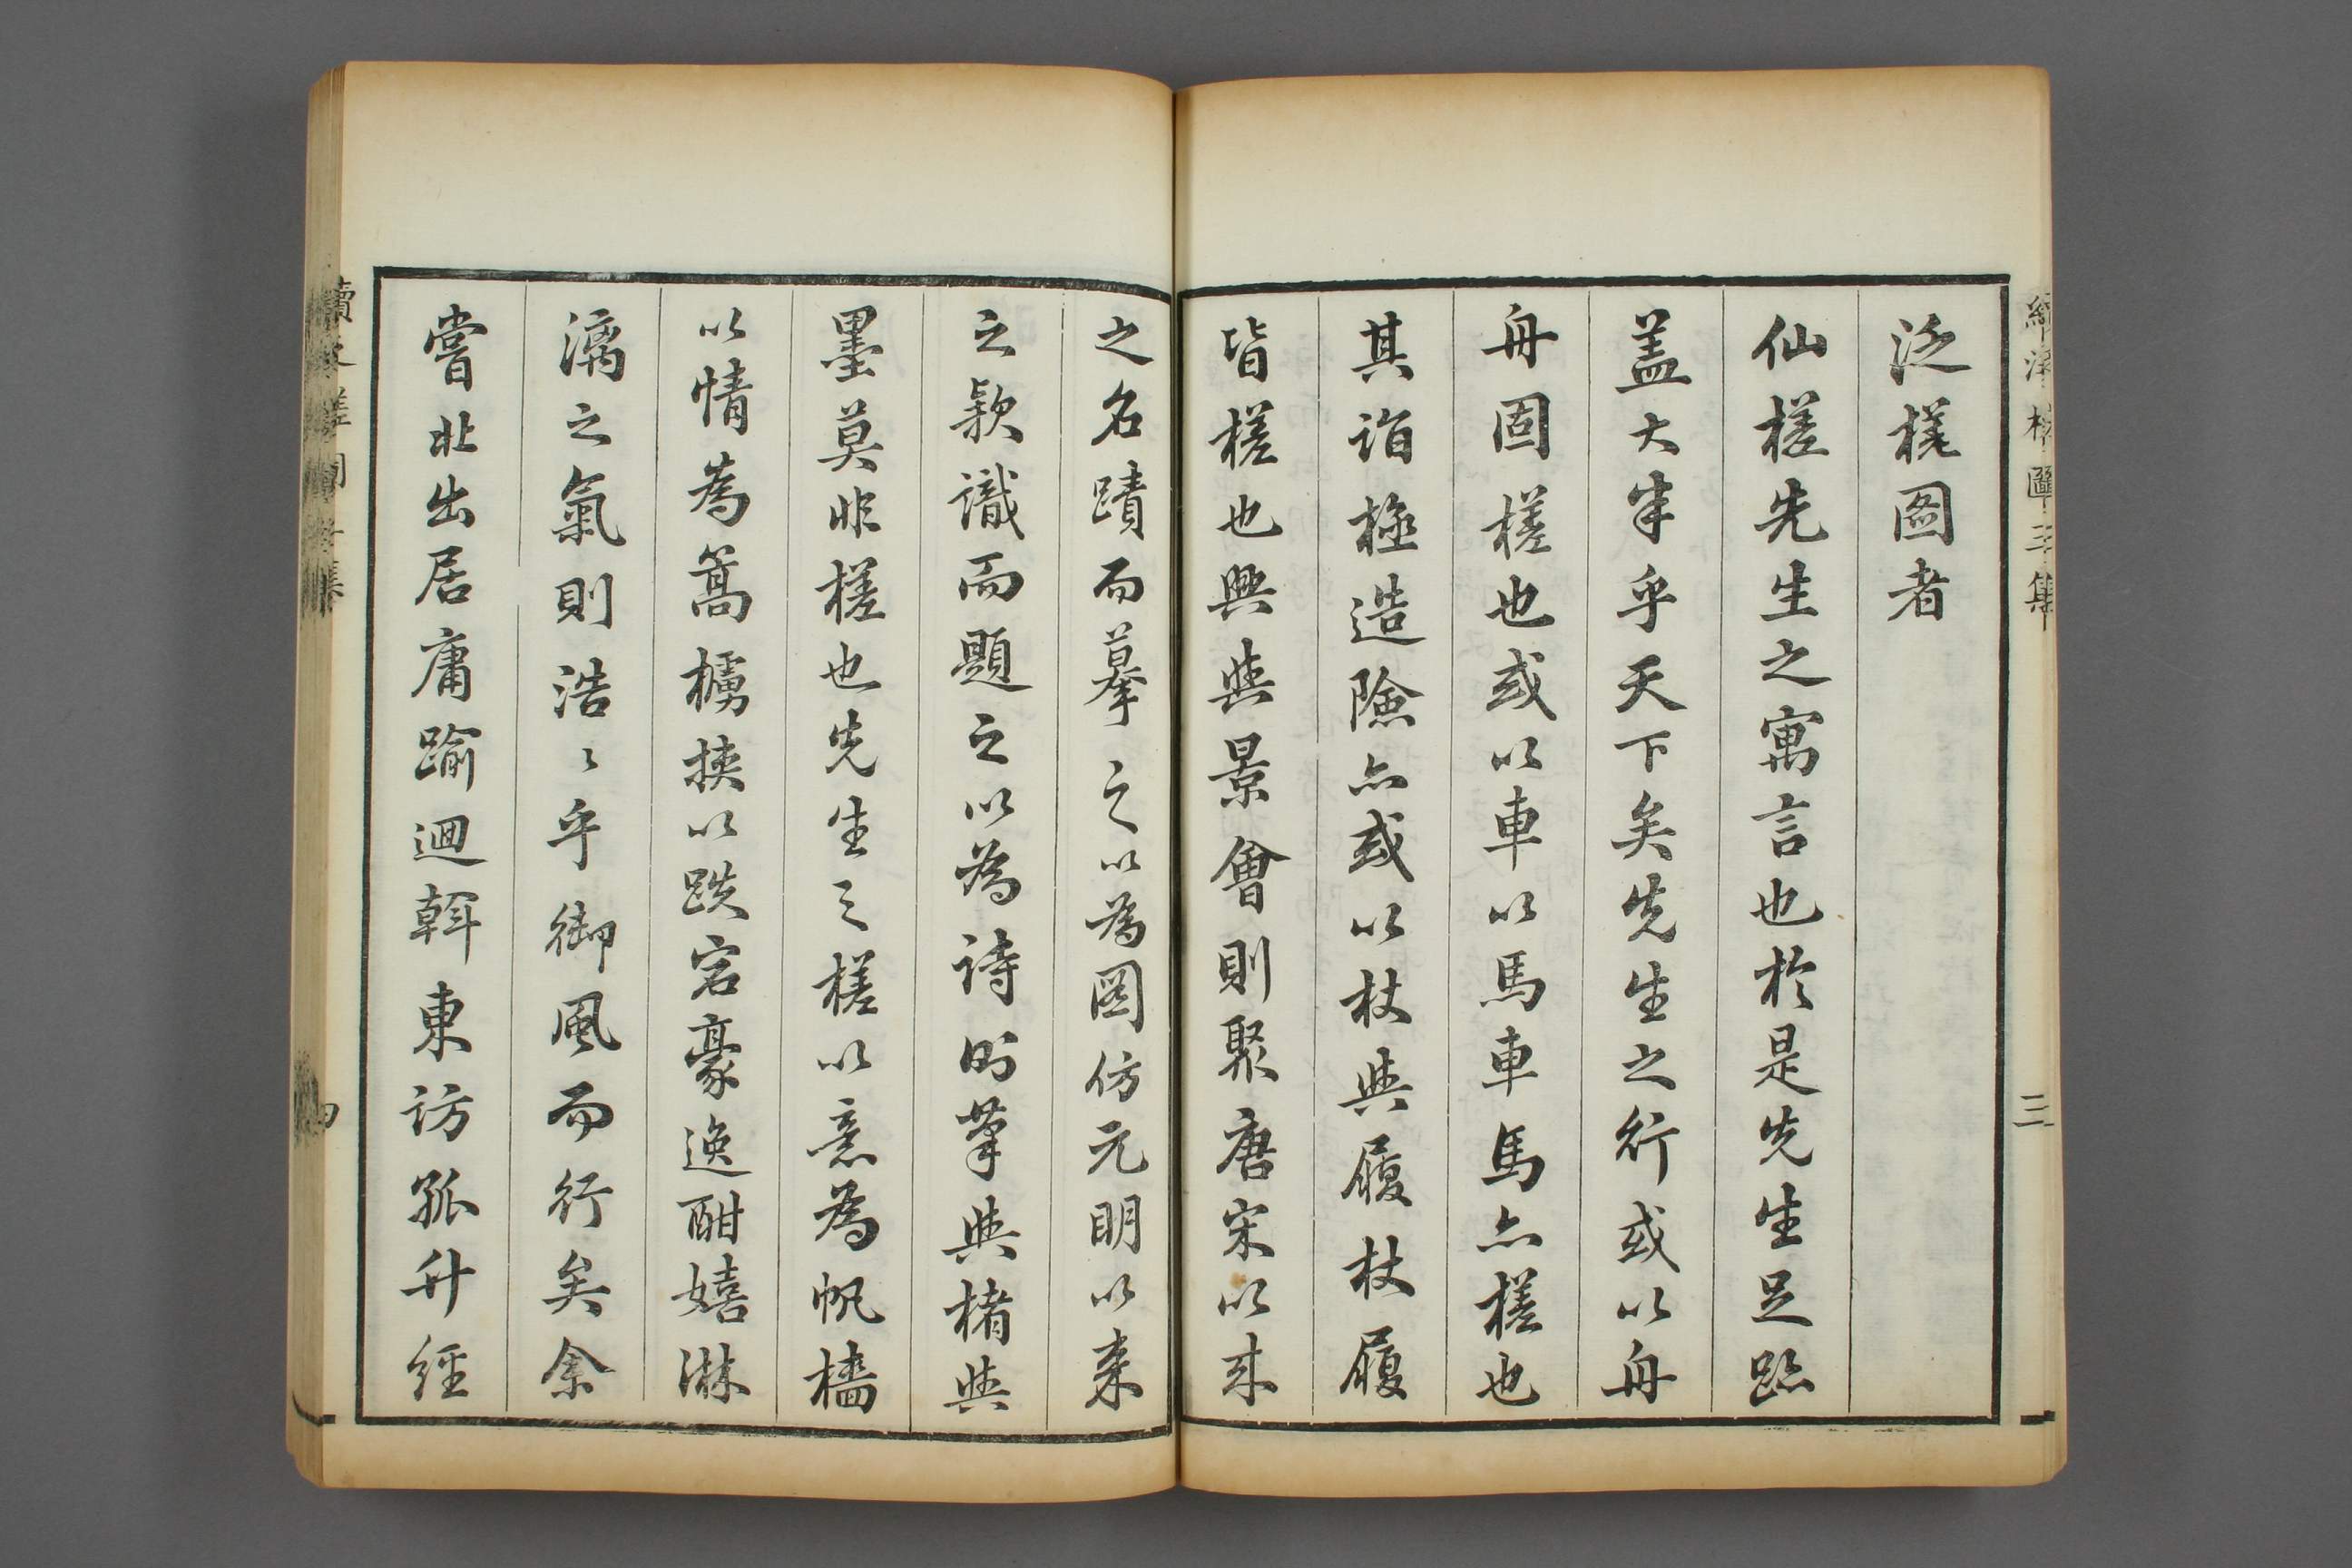 泛槎圖者
仙槎先生之寓言也於是先生足跡
蓋大半乎天下矣先生之行或以舟
舟固槎也或以車以馬車馬亦槎也
其詣極造險亦或以杖與履杖履
皆槎也興與景會則聚唐宋以來
之名蹟而摹之以為圖仿元明以來
之款識而題之以為詩的筆與楮與
墨莫非槎也先生之槎以意為帆檣
以情為篙櫓挾以跌宕豪逸酣嬉淋
漓之氣則浩〻乎御風而行矣余
嘗北出居庸踰迴斡東訪孤升經
三
四